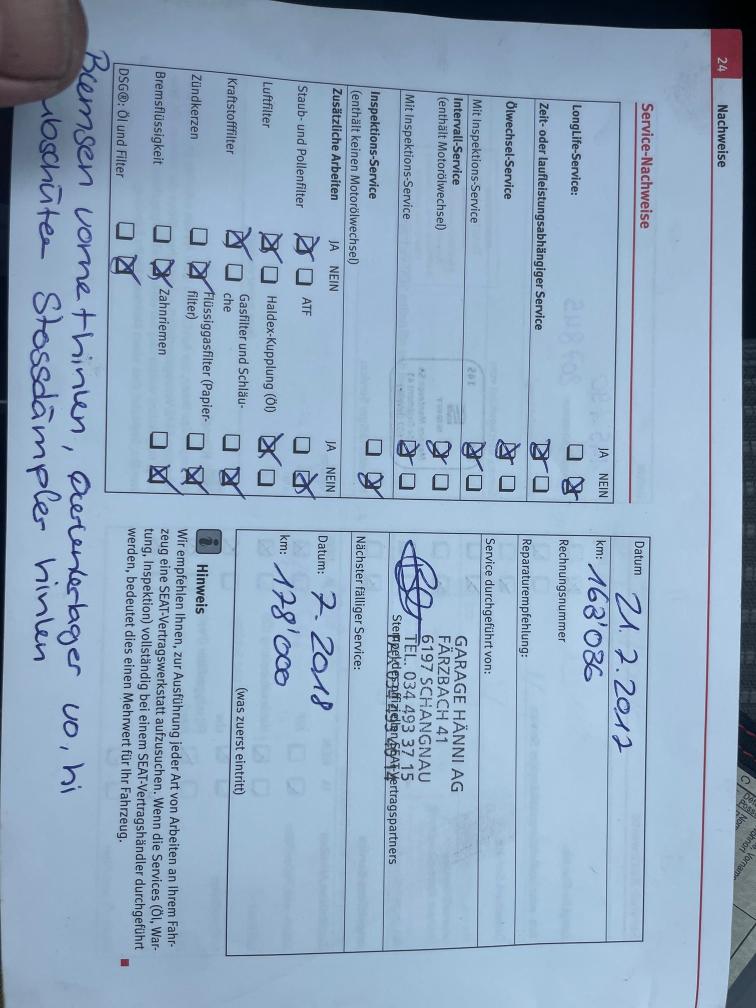 24 Nachweise
Service-Nachweise
JA NEIN
LongLife-Service:
Zeit- oder laufleistungsabhängiger Service
Ölwechsel-Service
Mit Inspektions-Service
Intervall-Service
(enthält Motorölwechsel)
Mit Inspektions-Service
Inspektions-Service
(enthält keinen Motorölwechsel)
Zusätzliche Arbeiten JA NEIN JA NEIN
Staub- und Pollenfilter ATF
Luftfilter Haldex-Kupplung (Öl)
Kraftstofffilter Gasfilter und Schläu-
che
Zündkerzen Flüssiggasfilter (Papier-
filter)
Bremsflüssigkeit Zahnriemen
DSG®: Öl und Filter
Bremsen vorne + hinten, vo, hi
Stossdämpfer hinten
Datum 21.7.2017
km: 163'086
Rechnungsnummer
Reparaturempfehlung:
Service durchgeführt von:
GARAGE HÄNNI AG
FÄRZBACH 41
6197 SCHANGNAU
TEL. 034 493 37 15
Stempel des offiziellen SEAT-Vertragspartners
Nächster fälliger Service:
Datum: 7.2018
km: 178'000
(was zuerst eintritt)
i Hinweis
Wir empfehlen Ihnen, zur Ausführung jeder Art von Arbeiten an Ihrem Fahr-
zeug eine SEAT-Vertragswerkstatt aufzusuchen. Wenn die Services (Öl, War-
tung, Inspektion) vollständig bei einem SEAT-Vertragshändler durchgeführt
werden, bedeutet dies einen Mehrwert für Ihr Fahrzeug.